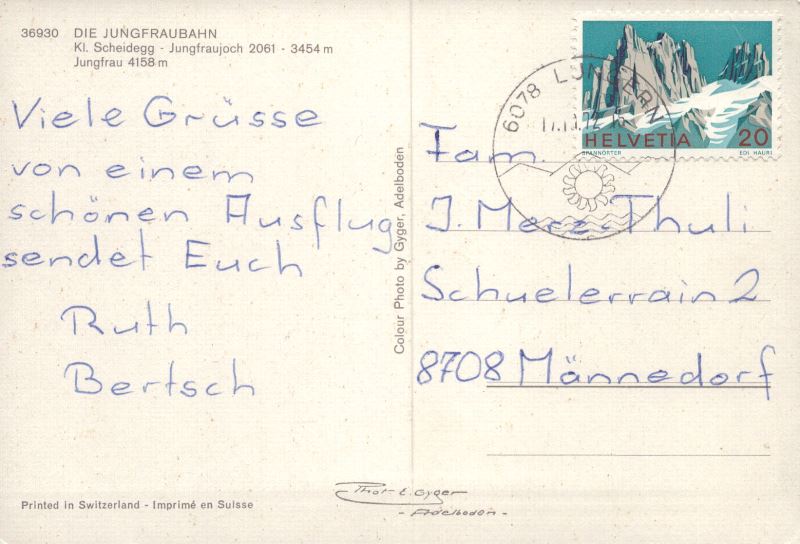 36930 DIE JUNGFRAUBAHN
Kl. Scheidegg - Jungfraujoch 2061 - 3454 m
Jungfrau 4158 m
Viele Grüsse
von einem
schönen Ausflug
sendet Euch
Ruth
Bertsch
Printed in Switzerland - Imprimé en Suisse
Colour Photo by Gyger, Adelboden
Phot. E. Gyger
- Adelboden -
6078 LUNGERN
HELVETIA 20
SPANNÖRTER EDI HAURI
Fam.
J. Merz-Thuli
Schuelerrain 2
8708 Männedorf